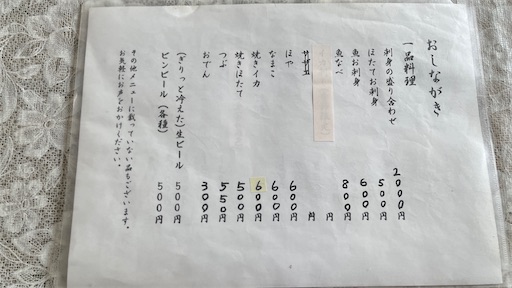 おしながき
一品料理
刺身の盛り合わせ 2000円
ほたてお刺身 500円
魚お刺身 600円
魚なべ 800円
円
サザエ 円
ほや 600円
なまこ 600円
焼きイカ 600円
焼きほたて 500円
つぶ 550円
おでん 300円
(ぎりっと冷えた)生ビール 500円
ビンビール(各種) 500円
その他メニューに載っていない品もございます。
お気軽にお声をおかけください。